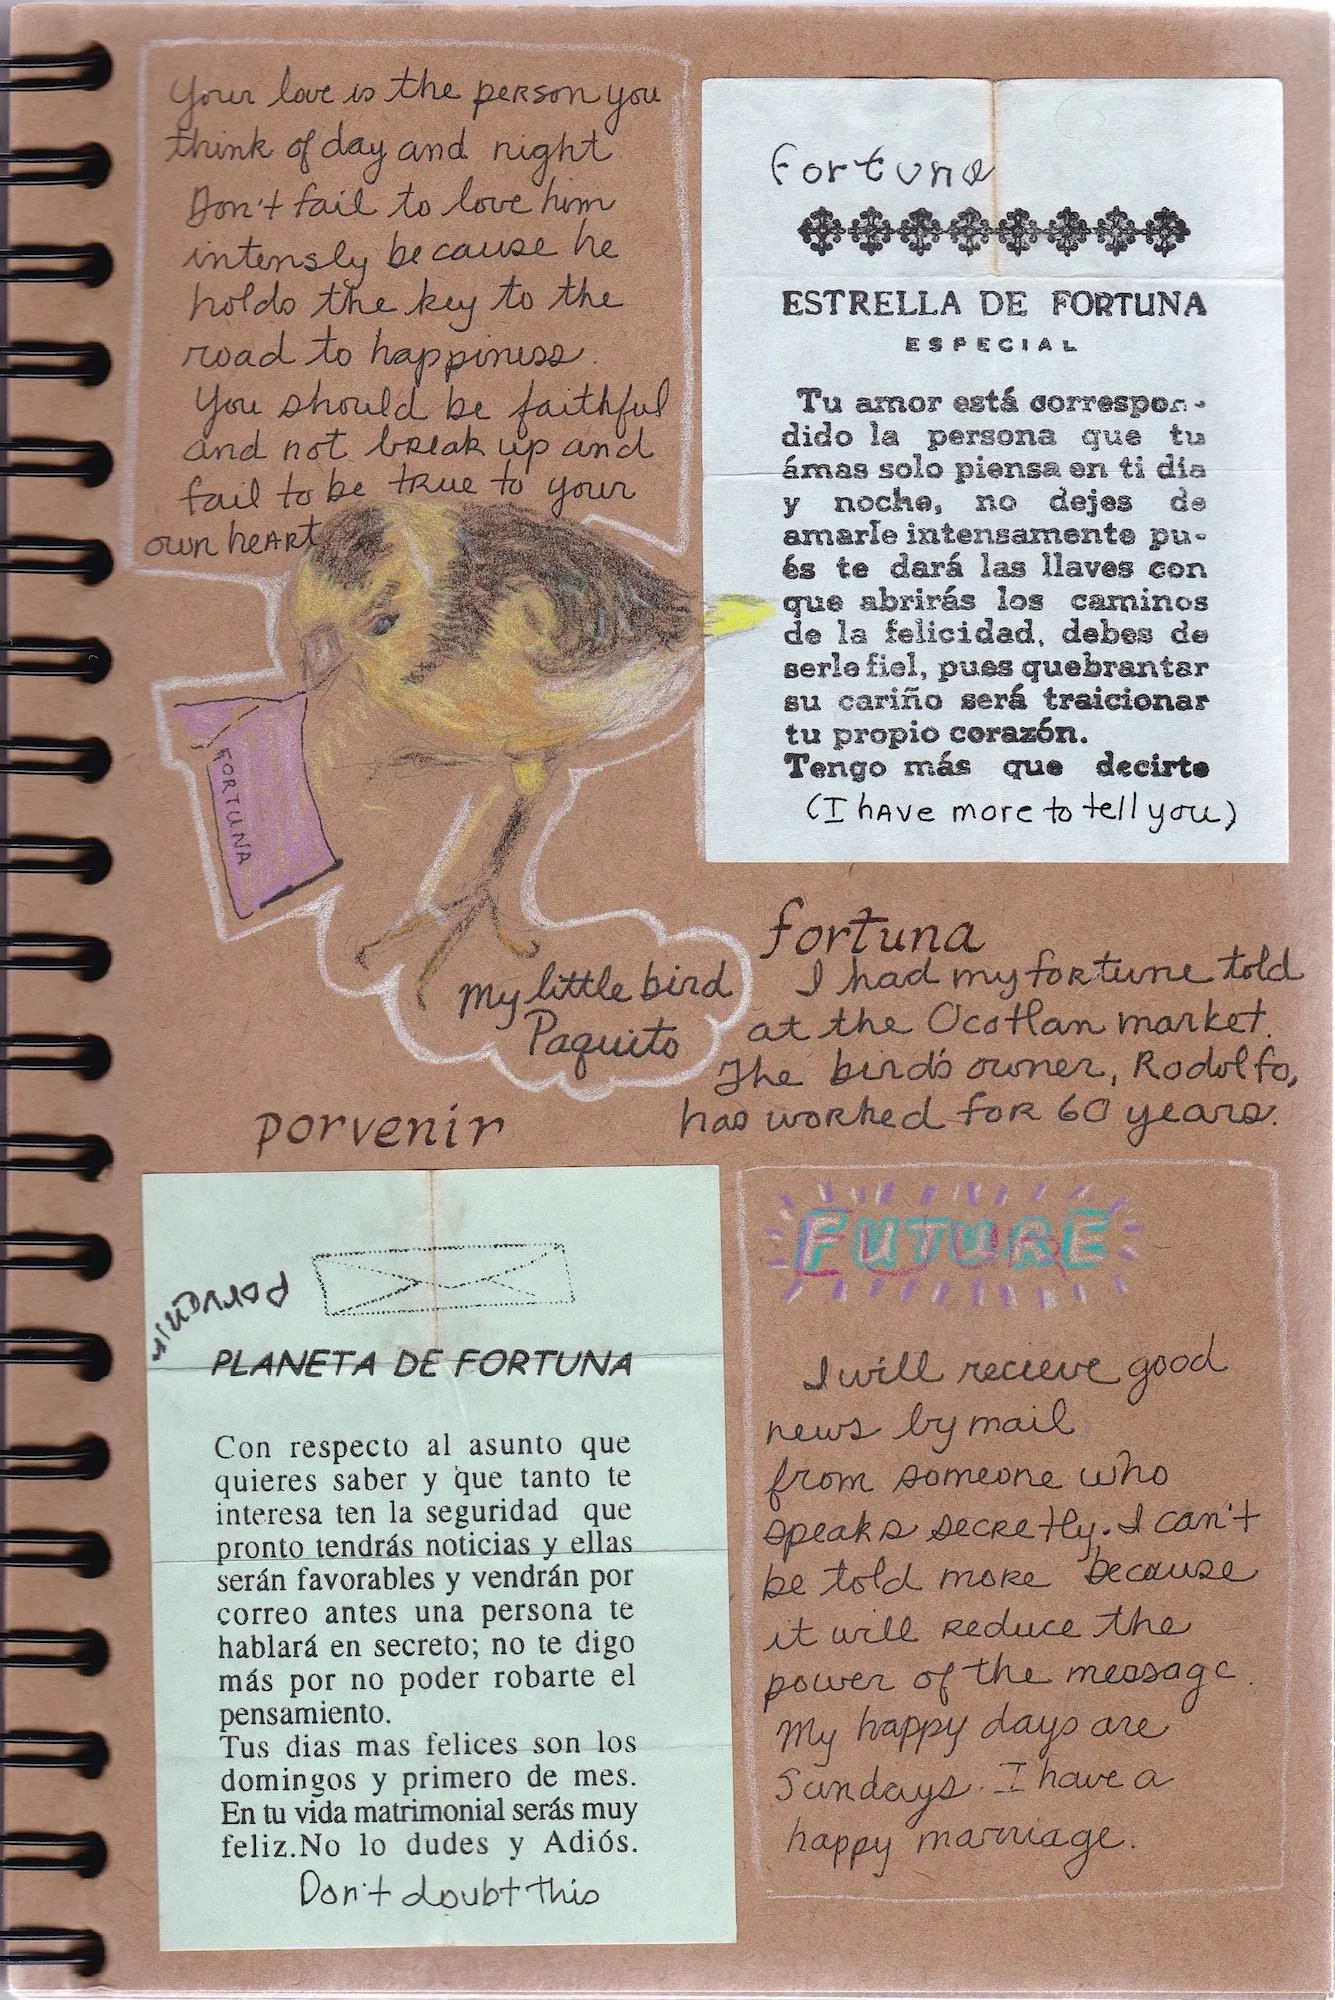 Your love is the person you
think of day and night.
Don't fail to love him
intensly because he
holds the key to the
road to happiness.
You should be faithful
and not break up and
fail to be true to your
own heart
FORTUNA
My little bird
Paquito
Fortuna
ESTRELLA DE FORTUNA
ESPECIAL
Tu amor está correspon-
dido la persona que tu
ámas solo piensa en ti día
y noche, no dejes de
amarle intensamente pu-
és te dará las llaves con
que abrirás los caminos
de la felicidad, debes de
serle fiel, pues quebrantar
su cariño será traicionar
tu propio corazón.
Tengo más que decirte
(I have more to tell you)
fortuna
I had my fortune told
at the Ocotlan market.
The bird's owner, Rodolfo,
has worked for 60 years.
porvenir
Porvenir
PLANETA DE FORTUNA
Con respecto al asunto que
quieres saber y que tanto te
interesa ten la seguridad que
pronto tendrás noticias y ellas
serán favorables y vendrán por
correo antes una persona te
hablará en secreto; no te digo
más por no poder robarte el
pensamiento.
Tus dias mas felices son los
domingos y primero de mes.
En tu vida matrimonial serás muy
feliz.No lo dudes y Adiós.
Don't doubt this
FUTURE
I will recieve good
news by mail
from someone who
speaks secretly. I can't
be told more because
it will reduce the
power of the message.
My happy days are
Sundays. I have a
happy marriage.